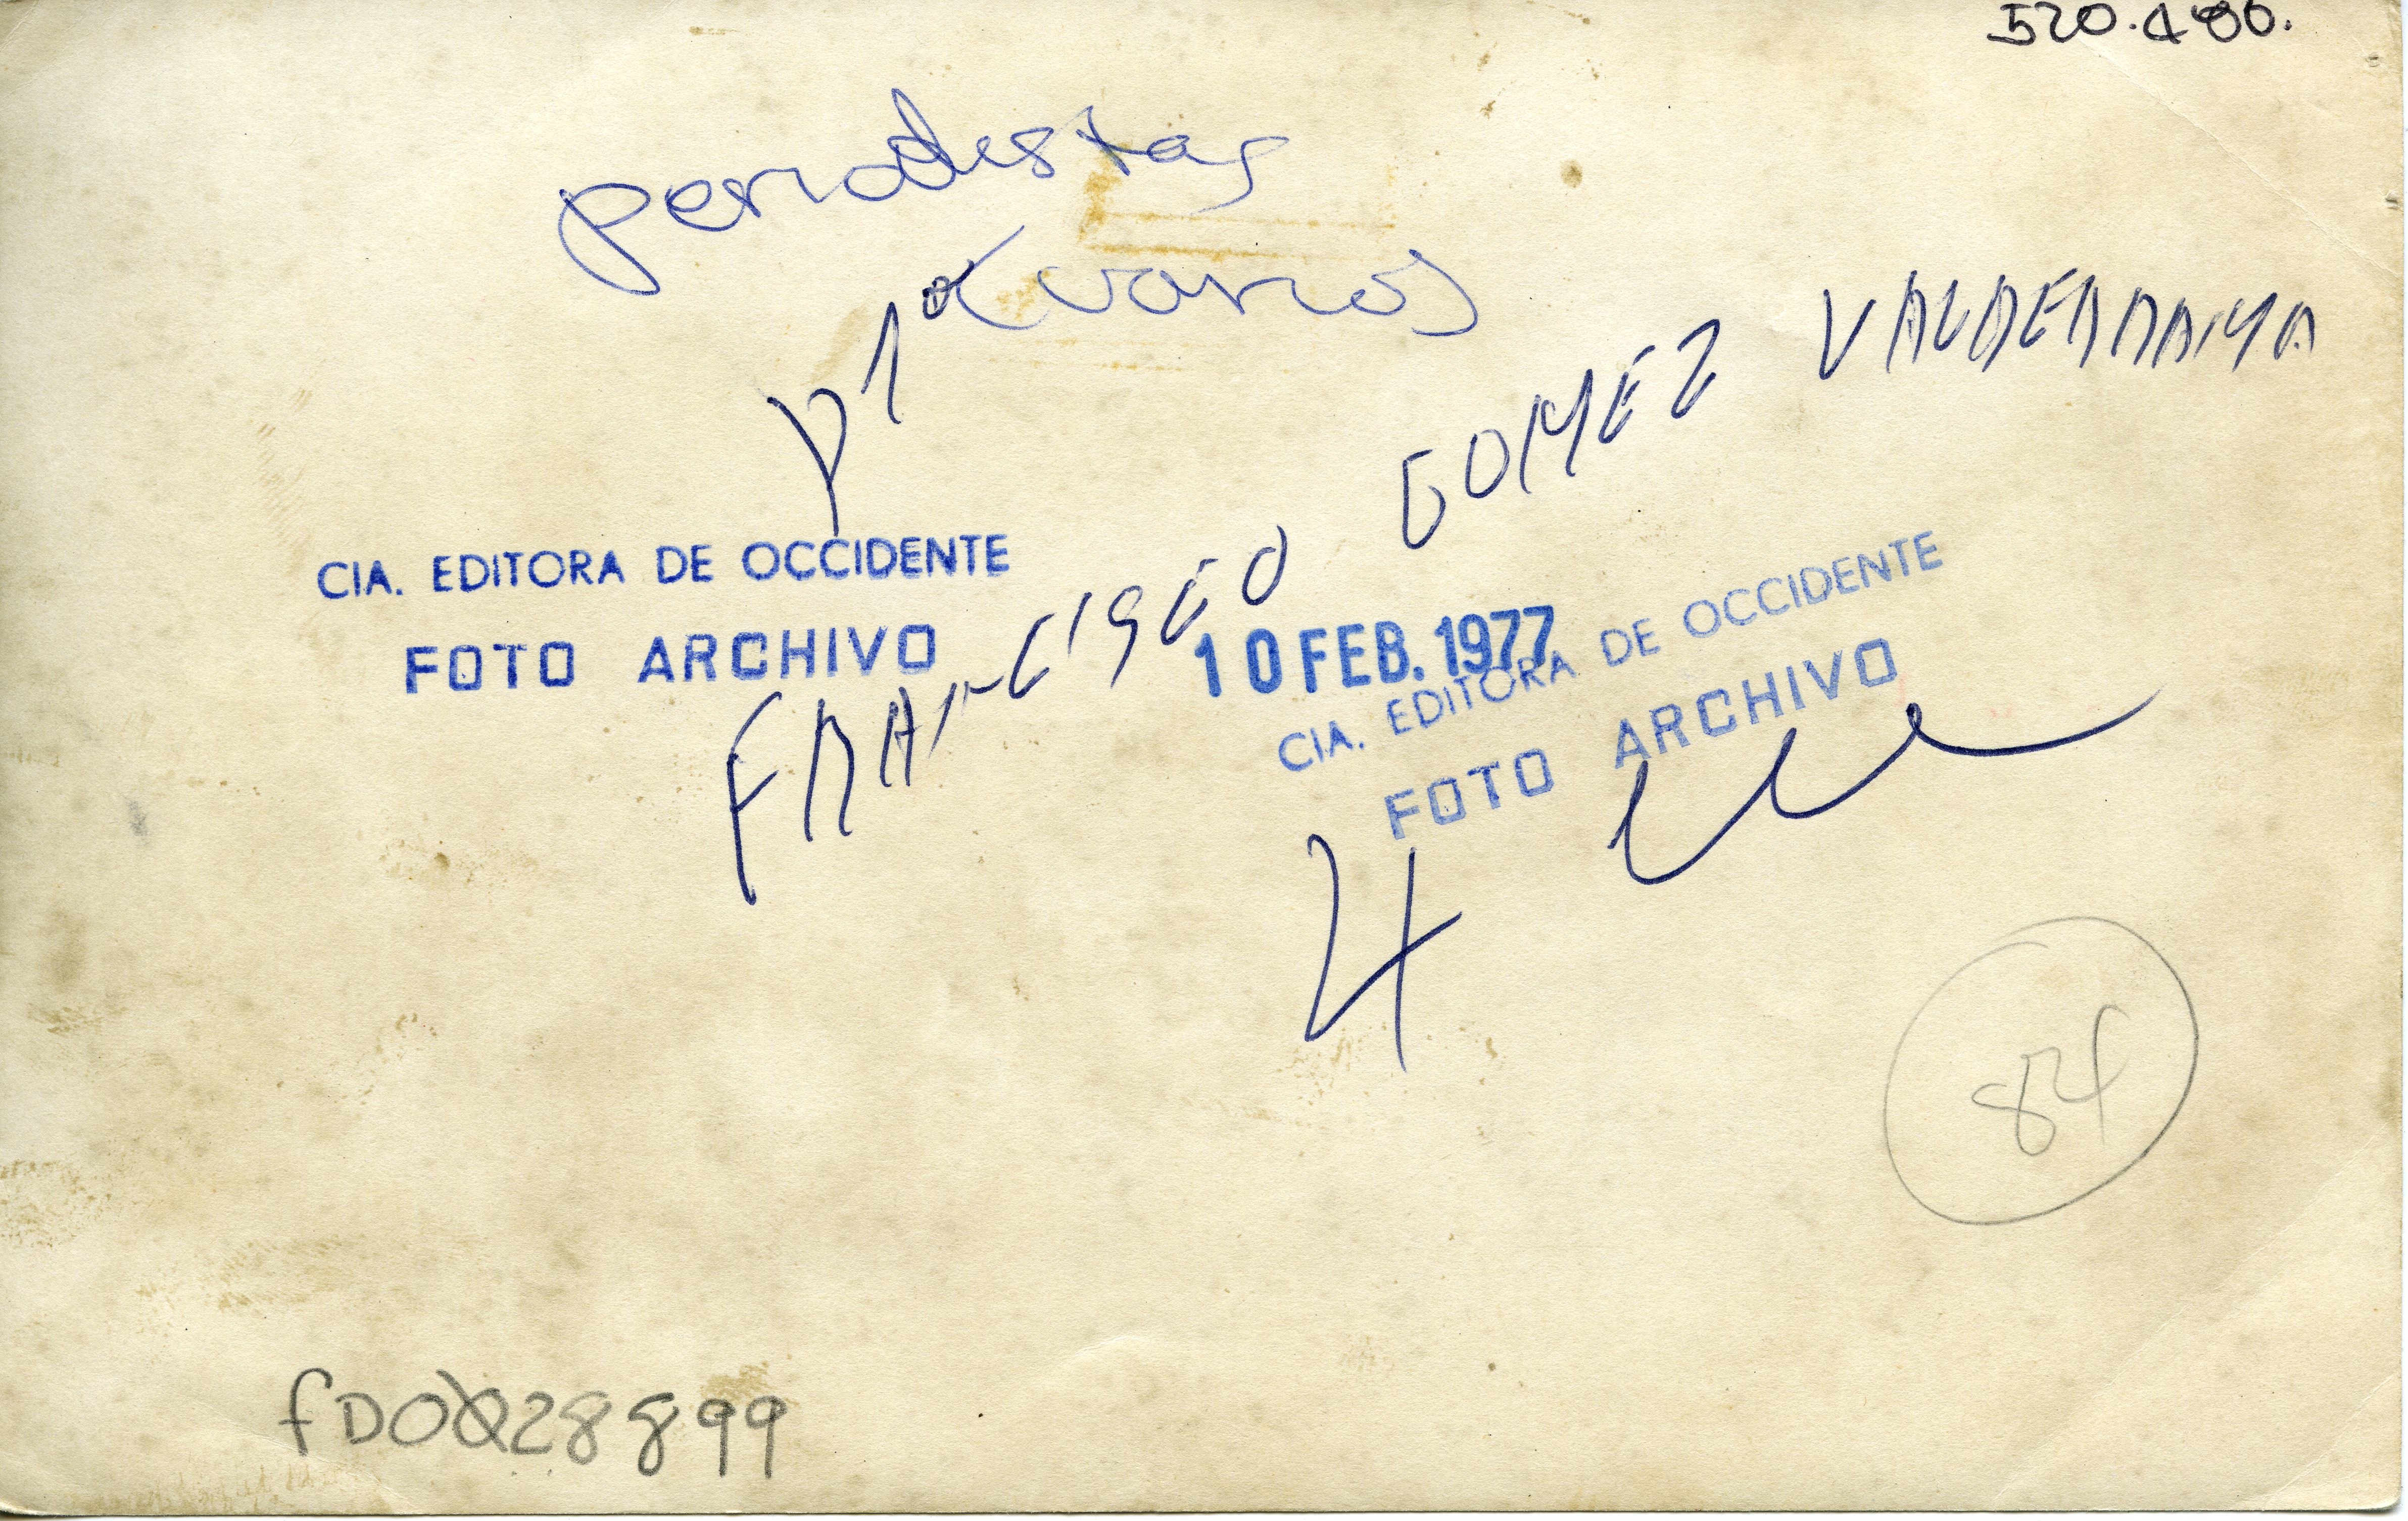 520.486.
periodistas
(varios)
P 1a
FRANCISCO GOMEZ VALDERRAMA
CIA. EDITORA DE OCCIDENTE
FOTO ARCHIVO
10 FEB. 1977
CIA. EDITORA DE OCCIDENTE
FOTO ARCHIVO
4
84
fD0028899